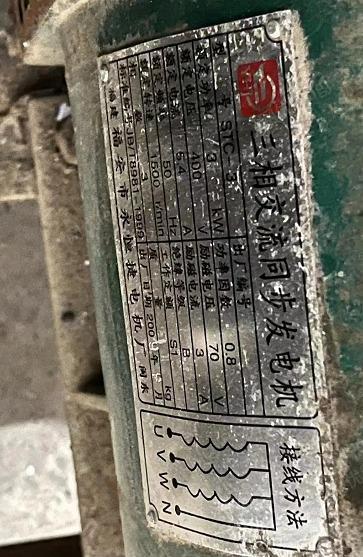 三相交流同步发电机
型号 STC-3 出厂编号
额定功率 3 kW 功率因数 0.8
额定电压 400 V 励磁电压 70 V
额定电流 5.4 A 励磁电流 3 A
额定频率 50 Hz 绝缘等级 B
额定转速 1500 r/min 工作定额 S1
JB/T8981-1999 质量 kg
出厂日期 200 年 月
福建福安市
捷电机厂
接线方法
U V W N